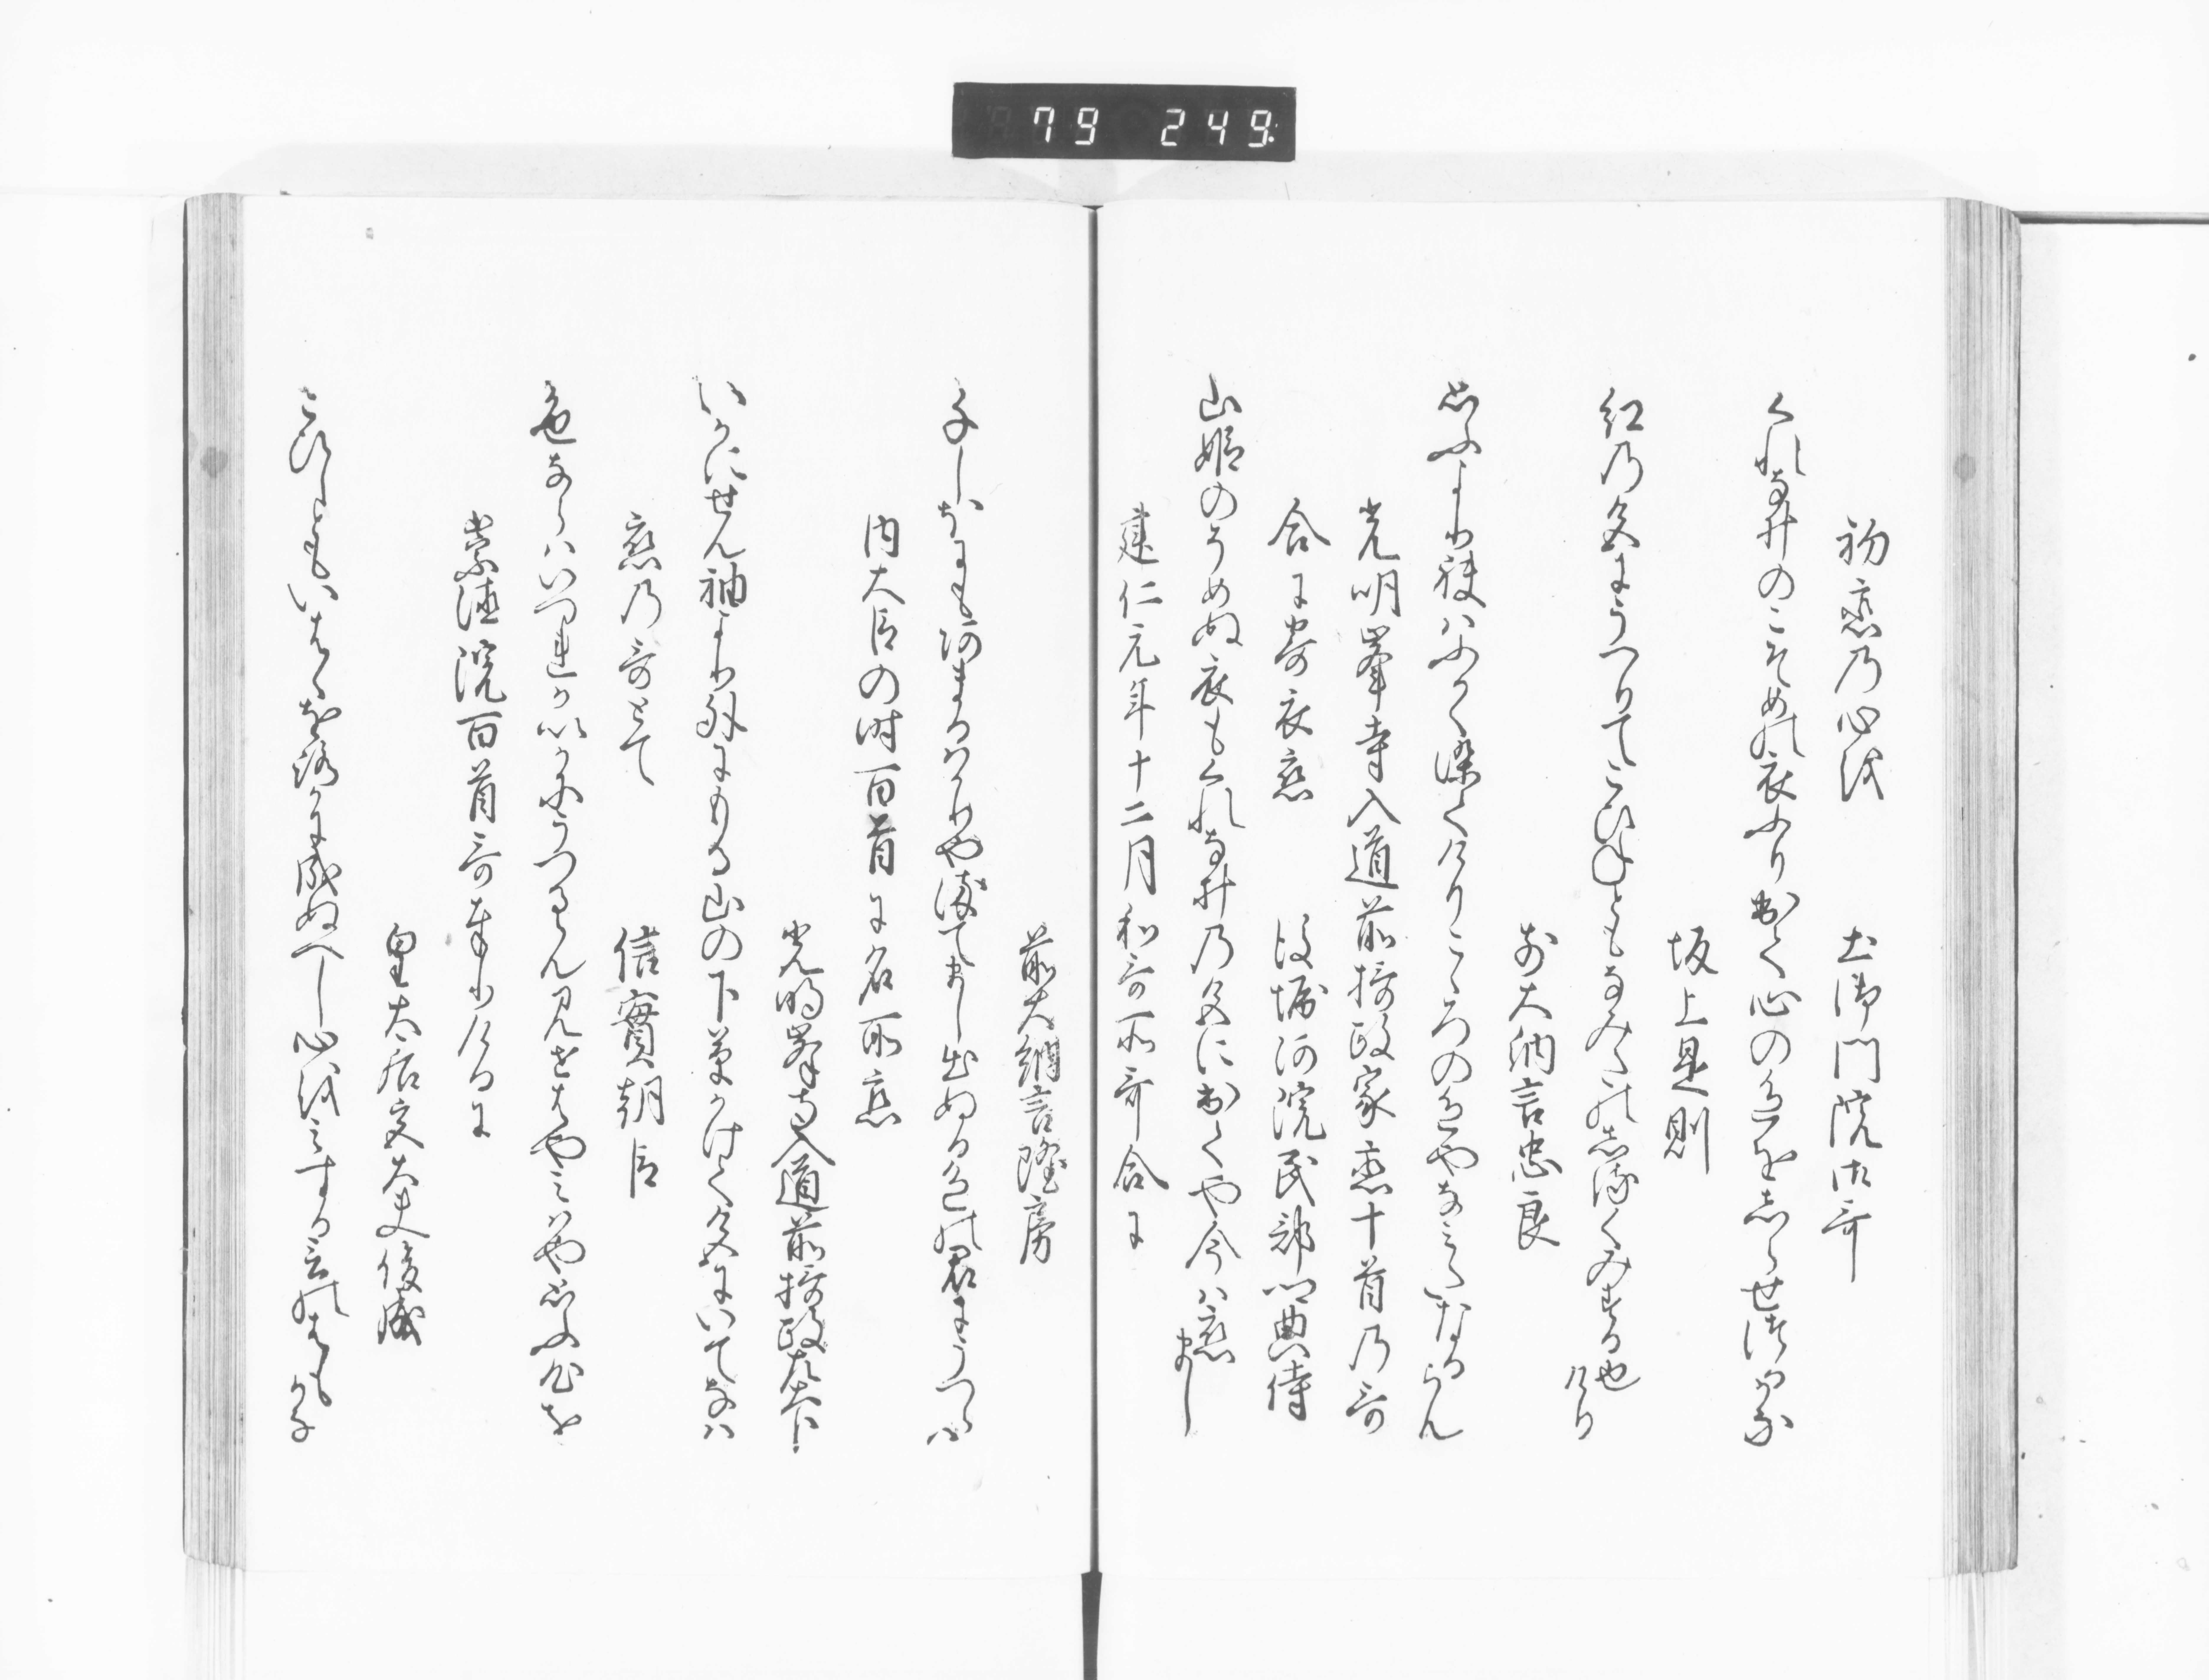 79 249
初恋乃心を
土御門院御哥
くれなゐのこそめの衣ふりいてゝ心の色をしらせつるかな
坂上是則
紅乃色にうつりてこひすともなみたのしるくみする也けり
前大納言忠良
思ふより袂はふかく染てけりこゝろの色やなみたなるらん
光明峯寺入道前摂政家恋十首乃哥
合に寄衣恋
後堀河院民部卿典侍
山姫のそめぬ衣もくれなゐ乃色に出てや今は恋まし
建仁元年十二月和哥所哥合に
前大納言隆房
千しほにもあまるはかりや染てまし出ぬる色の君にうつらは
内大臣の時百首に名所恋
光明峯寺入道前摂政左大臣
いかにせん袖より外にもる山の下葉かけて色にいてなは
恋乃哥とて
信實朝臣
色ならはいつれかいかにうつるらん見せはやみはや思ふ心を
崇徳院百首哥奉りけるに
皇太后宮大夫俊成
こひしともいはゝをろかに成ぬへし心をみする言のはもかな